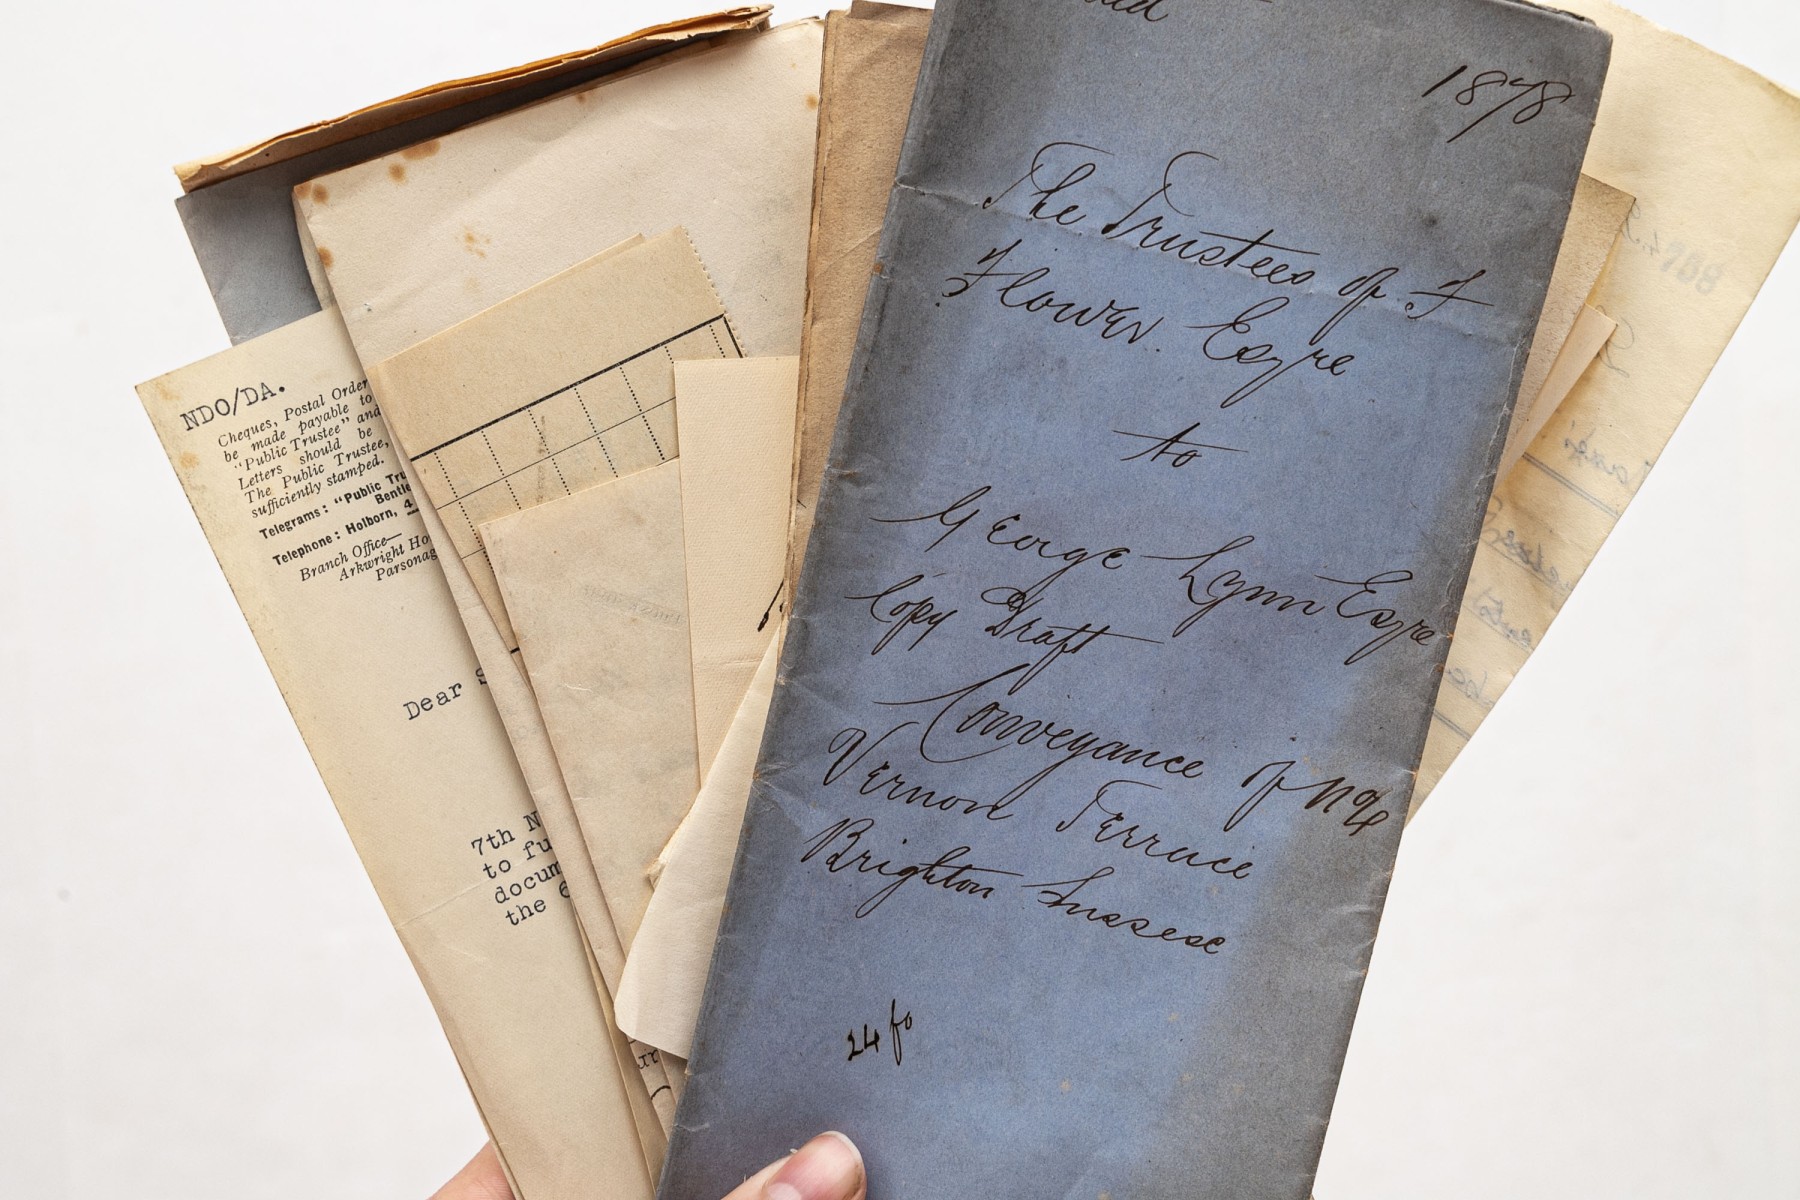 1878
The Trustees of F
Flower Esqre
to
George Lynn Esqre
Copy Draft
Conveyance of No 4
Vernon Terrace
Brighton Sussex
24 fo
NDO/DA.
Cheques, Postal Order
be made payable to
"Public Trustee" and
Letters should be
The Public Trustee,
sufficiently stamped.
Telegrams: "Public Tru
Bentle
Telephone: Holborn, 4
Branch Office—
Arkwright Ho
Parsonag
Dear S
7th N
to fu
docum
the 6